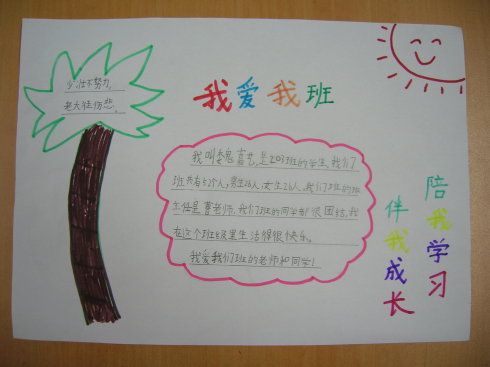 少壮不努力,
老大徒伤悲。
我爱我班
我叫魏富,是203班的学生,我们
班共有个人,男生人,女生人。我们班的班
主任是曹老师,我们班的同学都很团结,我
在这个班级里生活得很快乐。
我爱我们班的老师和同学!
陪我学习
伴我成长